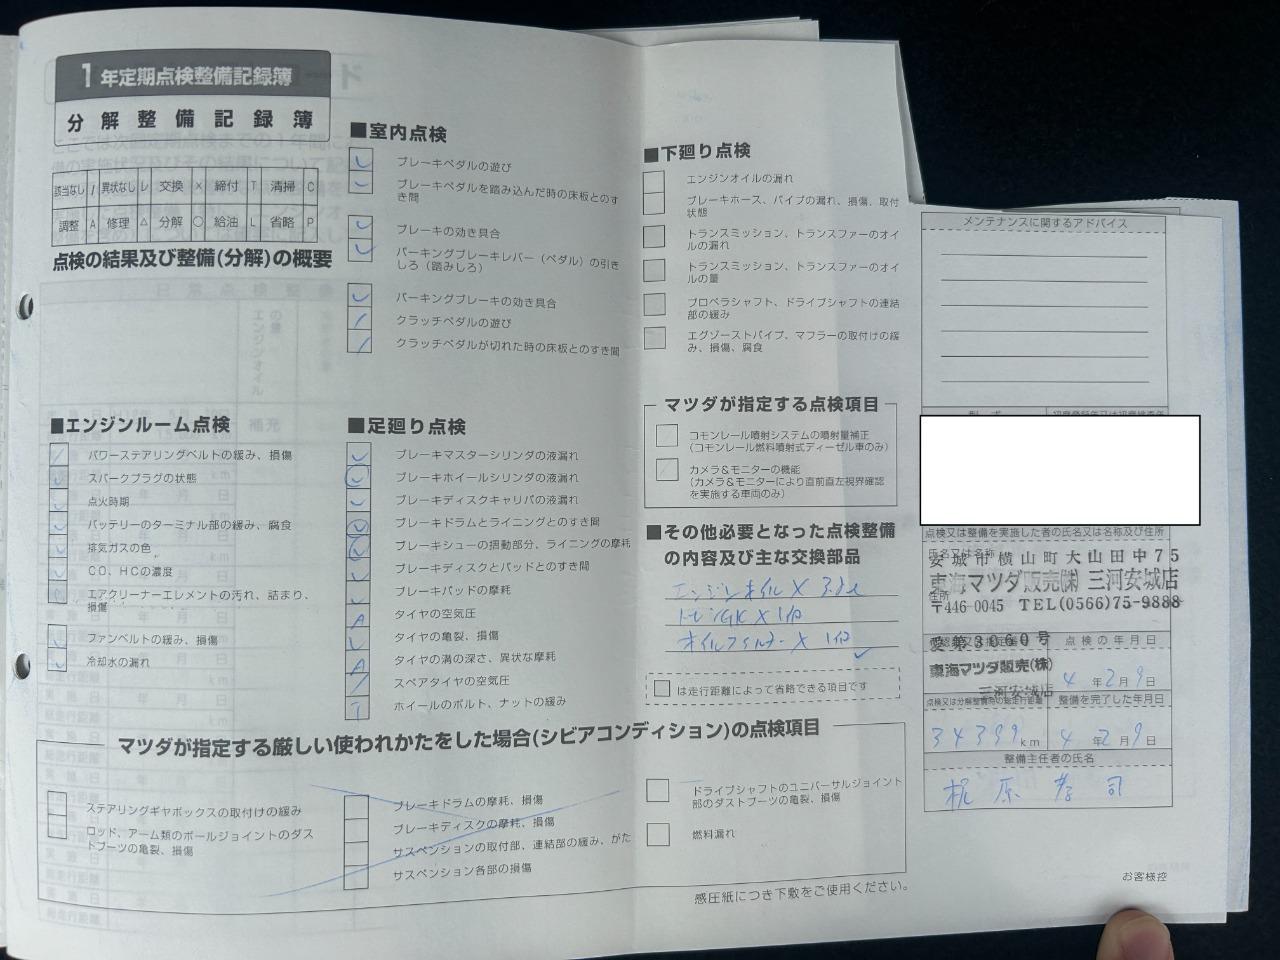 1年定期点検整備記録簿
分解整備記録簿
該当なし / 異状なし レ 交換 × 締付 T 清掃 C
調整 A 修理 △ 分解 ○ 給油 L 省略 P
点検の結果及び整備(分解)の概要
■エンジンルーム点検
パワーステアリングベルトの緩み、損傷
スパークプラグの状態
点火時期
バッテリーのターミナル部の緩み、腐食
排気ガスの色
CO、HCの濃度
エアクリーナーエレメントの汚れ、詰まり、
損傷
ファンベルトの緩み、損傷
冷却水の漏れ
■室内点検
レ ブレーキペダルの遊び
レ ブレーキペダルを踏み込んだ時の床板とのす
き間
レ ブレーキの効き具合
レ パーキングブレーキレバー（ペダル）の引き
しろ（踏みしろ）
レ パーキングブレーキの効き具合
/ クラッチペダルの遊び
/ クラッチペダルが切れた時の床板とのすき間
■足廻り点検
レ ブレーキマスターシリンダの液漏れ
レ ブレーキホイールシリンダの液漏れ
レ ブレーキディスクキャリパの液漏れ
レ ブレーキドラムとライニングとのすき間
レ ブレーキシューの摺動部分、ライニングの摩耗
レ ブレーキディスクとパッドとのすき間
レ ブレーキパッドの摩耗
A タイヤの空気圧
レ タイヤの亀裂、損傷
A タイヤの溝の深さ、異状な摩耗
/ スペアタイヤの空気圧
T ホイールのボルト、ナットの緩み
■下廻り点検
エンジンオイルの漏れ
ブレーキホース、パイプの漏れ、損傷、取付
状態
トランスミッション、トランスファーのオイ
ルの漏れ
トランスミッション、トランスファーのオイ
ルの量
プロペラシャフト、ドライブシャフトの連結
部の緩み
エグゾーストパイプ、マフラーの取付けの緩
み、損傷、腐食
マツダが指定する点検項目
コモンレール噴射システムの噴射量補正
（コモンレール燃料噴射式ディーゼル車のみ）
カメラ&モニターの機能
（カメラ&モニターにより直前直左視界確認
を実施する車両のみ）
■その他必要となった点検整備
の内容及び主な交換部品
エンジンオイル X
X 1個
オイルフィルター X 1個
は走行距離によって省略できる項目です
マツダが指定する厳しい使われかたをした場合(シビアコンディション)の点検項目
ステアリングギヤボックスの取付けの緩み
ロッド、アーム類のボールジョイントのダス
トブーツの亀裂、損傷
ブレーキドラムの摩耗、損傷
ブレーキディスクの摩耗、損傷
サスペンションの取付部、連結部の緩み、がた
サスペンション各部の損傷
ドライブシャフトのユニバーサルジョイント
部のダストブーツの亀裂、損傷
燃料漏れ
感圧紙につき下敷をご使用ください。
メンテナンスに関するアドバイス
点検又は整備を実施した者の氏名又は名称及び住所
氏名又は名称
安城市横山町大山田中75
東海マツダ販売㈱ 三河安城店
住所
〒446-0045 TEL(0566)75-9888
愛第3060号
点検の年月日
東海マツダ販売(株)
三河安城店
4年2月9日
点検又は分解整備時の総走行距離 整備を完了した年月日
34399km 4年2月9日
整備主任者の氏名
お客様控